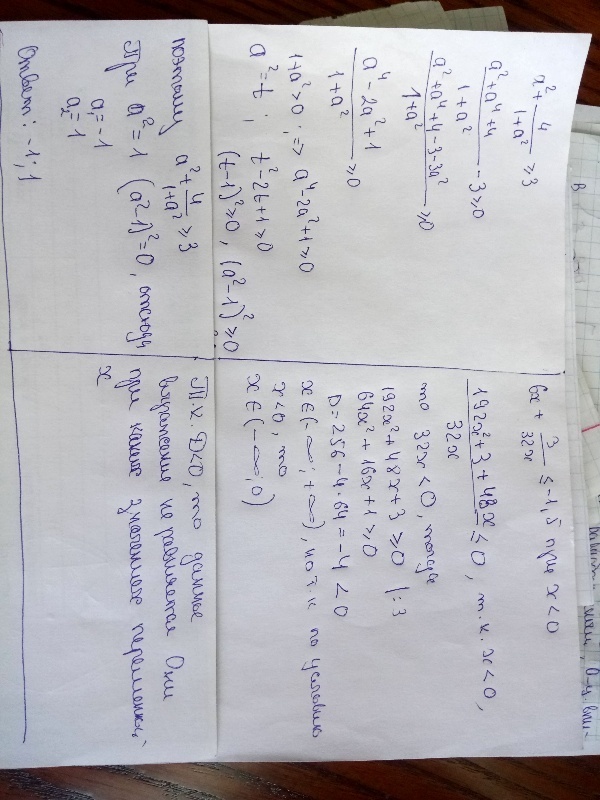 a² + 4/(1+a²) ≥ 3
(a²+a⁴+4)/(1+a²) - 3 ≥ 0
(a²+a⁴+4-3-3a²)/(1+a²) ≥ 0
(a⁴-2a²+1)/(1+a²) ≥ 0
1+a²>0; => a⁴-2a²+1≥0
a²=t; t²-2t+1≥0
(t-1)²≥0, (a²-1)²≥0
поэтому a² + 4/(1+a²) ≥ 3
При a²=1 (a²-1)²=0, отсюда
a₁=-1
a₂=1
Ответ: -1; 1
6x + 3/(32x) ≤ -1,5 при x<0
(192x²+3+48x)/(32x) ≤ 0, т.к. x<0,
то 32x<0, тогда
192x²+48x+3 ≥0 |:3
64x²+16x+1≥0
D=256-4·64=-4 <0
x∈(-∞;+∞), но т.к по условию
x<0, то
x∈(-∞;0)
Т.к. D<0, то данное
выражение не равняется 0 ни
при каких значениях переменной
x
В